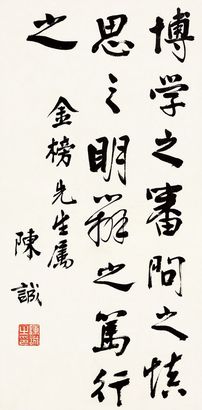 博学之審問之慎
思之明辨之篤行
之
金榜先生属
陳誠